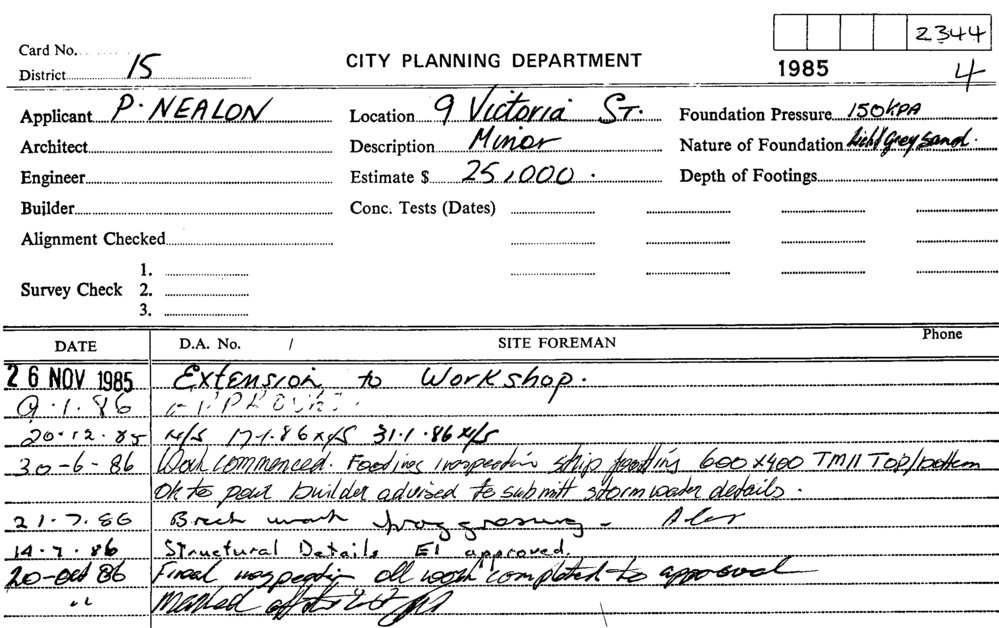 2344
Card No.
CITY PLANNING DEPARTMENT
District 15
1985 4
Applicant P. NEALON Location 9 Victoria ST. Foundation Pressure 150KPA
Architect Description Minor Nature of Foundation Grey Sand.
Engineer Estimate $ 25,000. Depth of Footings
Builder Conc. Tests (Dates)
Alignment Checked
Survey Check 1.
2.
3.
DATE D.A. No. / SITE FOREMAN Phone
26 NOV 1985 Extension to Workshop.
9.1.86
20.12.85 N/S 17.1.86 N/S 31.1.86 N/S
30-6-86 Work commenced. Footings inspection strip footing 600x400 TM11 Top/bottom
Ok to pour builder advised to submitt stormwater details.
21.7.86 Brick work progressing -
14.7.86 Structural Details E1 approved.
20-Oct 86 Final inspection all work completed to approval
" Marked off